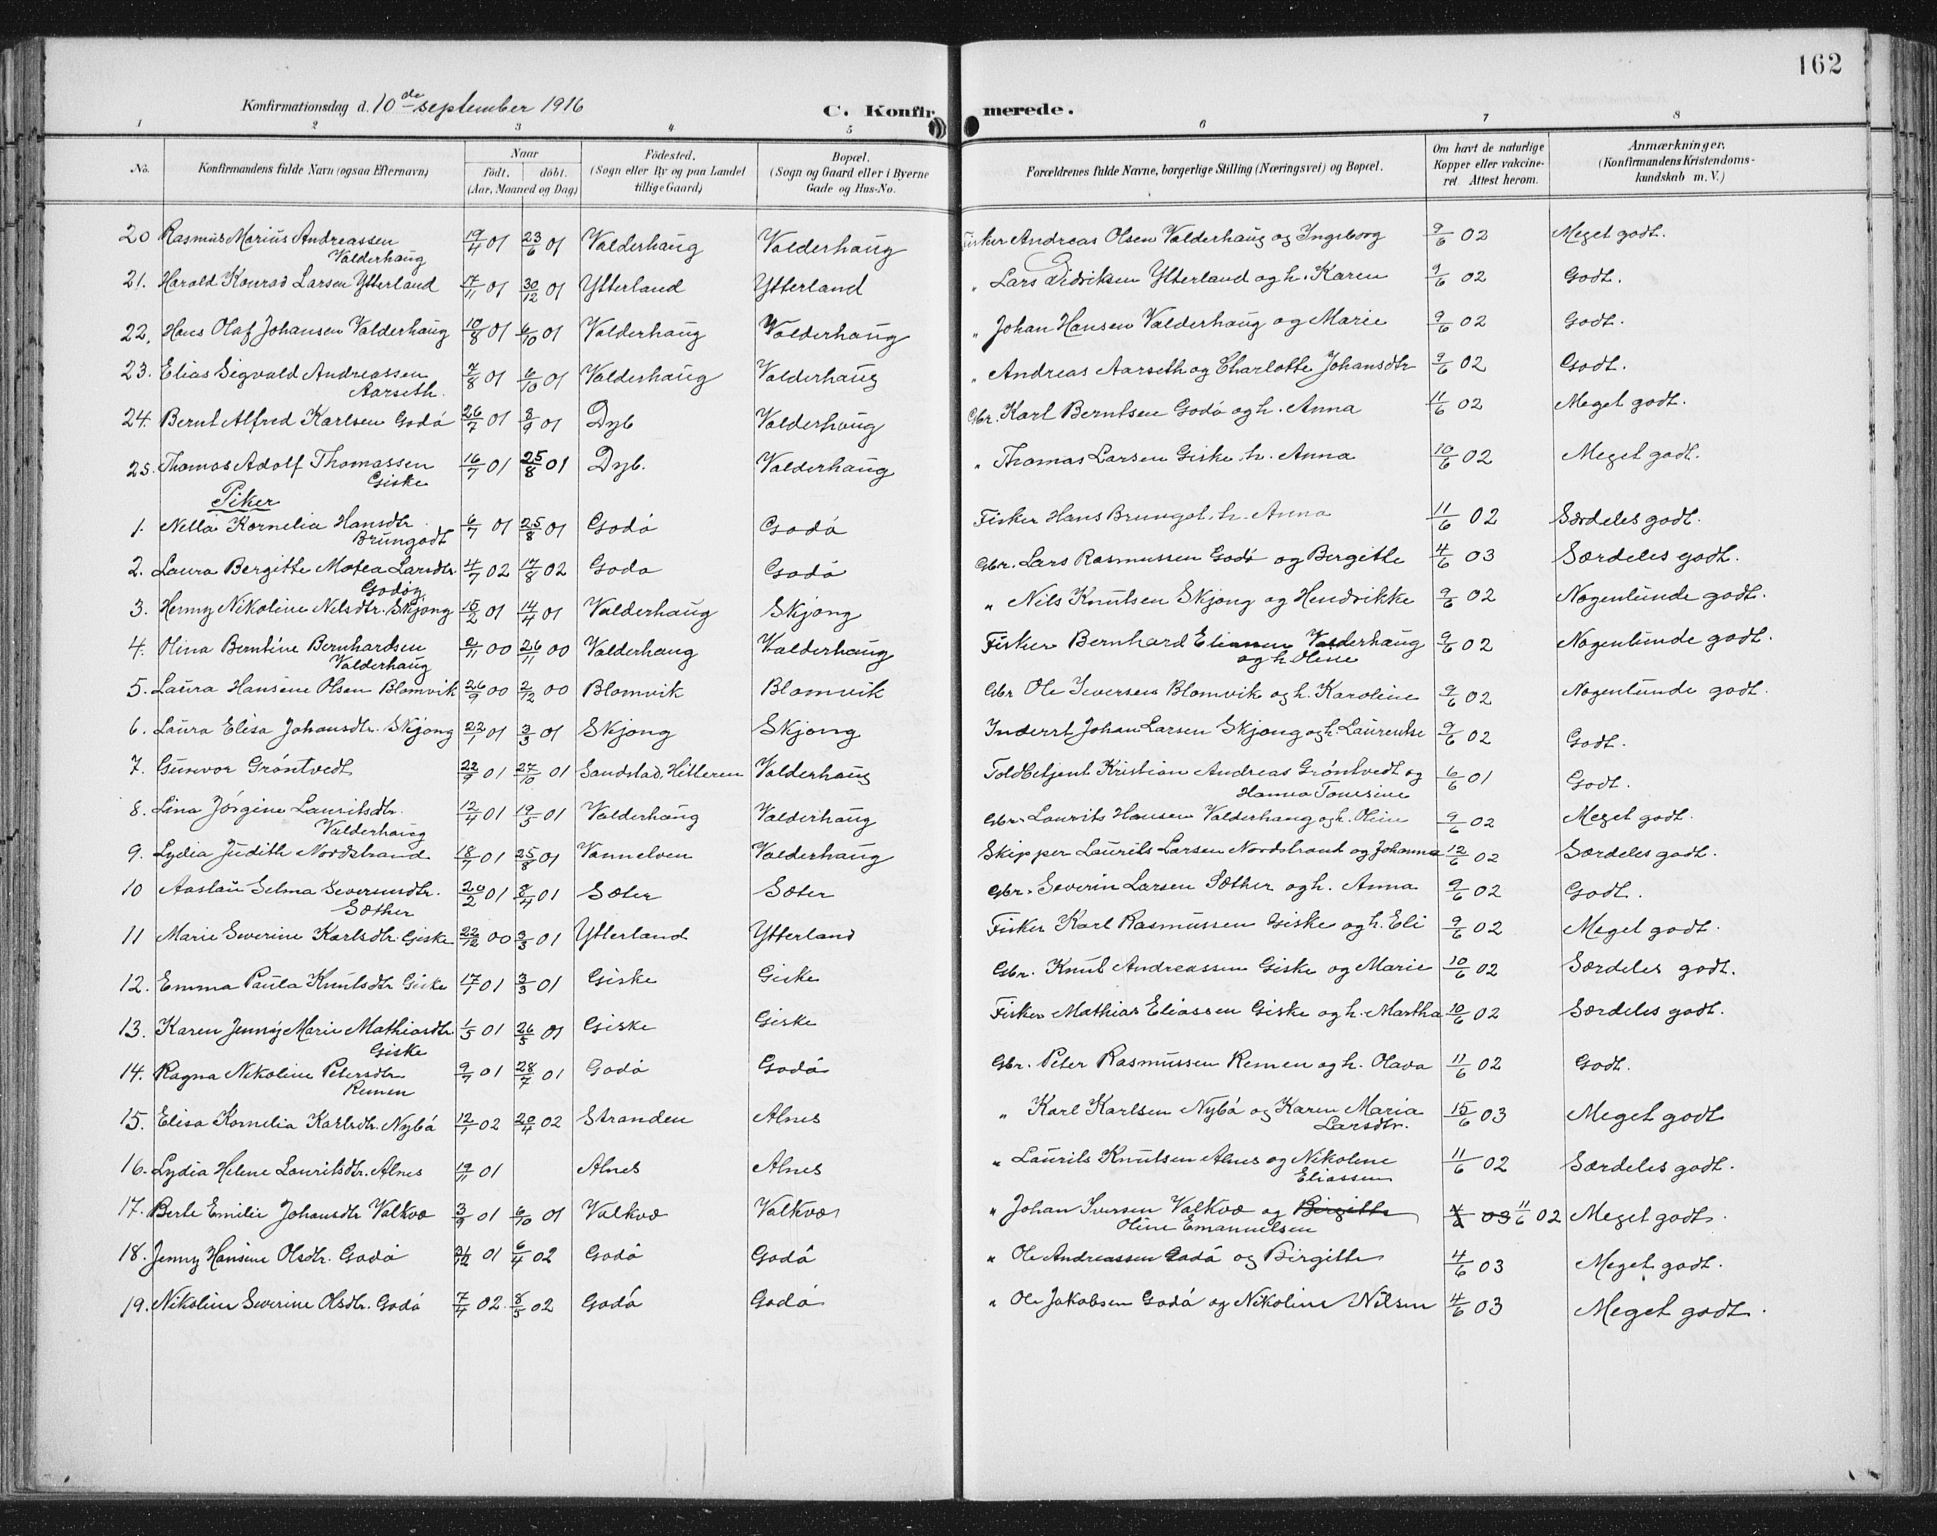 162
Konfirmationsdag d. 10de september 1916 C. Konfirmerede.
1 2 3 4 5 6 7 8
No. Konfirmandens fulde Navn (ogsaa Efternavn) Naar født. døbt. (Aar, Maaned og Dag) Fødested. (Sogn eller By og paa Landet tillige Gaard) Bopæl. (Sogn og Gaard eller i Byerne Gade og Hus-No. Forældrenes fulde Navne, borgerlige Stilling (Næringsvei) og Bopæl. Om havt de naturlige Kopper eller vakcineret. Attest herom. Anmærkninger. (Konfirmandens Kristendomskundskab m. V.)
20 Rasmus Marius Andreassen Valderhaug 19/4 01 23/6 01 Valderhaug Valderhaug Fisker Andreas Olsen Valderhaug og Ingeborg 9/6 02 Meget godt.
21. Harald Konrad Larsen Ytterland 17/11 01 30/12 01 Ytterland Ytterland " Lars Didriksen Ytterland og h. Karen 9/6 02 Godt.
22. Hans Olaf Johansen Valderhaug 10/8 01 6/10 01 Valderhaug Valderhaug " Johan Hansen Valderhaug og Marie 9/6 02 Godt.
23. Elias Sigvald Andreassen Aarseth. 7/8 01 6/10 01 Valderhaug Valderhaug " Andreas Aarseth og Charlotte Johansdtr 9/6 02 Godt.
24. Bernt Alfred Karlsen Godø 26/7 01 8/9 01 Dyb Valderhaug Gbr. Karl Berntsen Godø og h. Anna 11/6 02 Meget godt.
25. Thomas Adolf Thomassen Giske 16/7 01 25/8 01 Dyb. Valderhaug " Thomas Larsen Giske h. Anna 10/6 02 Meget godt.
Piker
1. Nella Kornelia Hansdtr. Brungodt 6/7 01 25/8 01 Godø Godø Fisker Hans Brungot h. Anna 11/6 02 Særdeles godt.
2. Laura Bergitte Motea Larsdtr Godøy 4/7 02 17/8 02 Godø Godø Gbr. Lars Rasmussen Godø og Bergitte 4/6 03 Særdeles godt.
3. Henny Nikoline Nilsdtr. Skjong 15/2 01 14/4 01 Valderhaug Skjong " Nils Knutsen Skjong og Hendrikke 9/6 02 Nogenlunde godt.
4. Olina Bentine Bernhardsen Valderhaug 2/11 00 26/11 00 Valderhaug Valderhaug Fisker Bernhard Eliassen Valderhaug og h. Oline 9/6 02 Nogenlunde godt.
5. Laura Hansine Olsen Blomvik 26/9 00 2/12 00 Blomvik Blomvik Gbr Ole Iversen Blomvik og h. Karoline 9/6 02 Nogenlunde godt.
6. Laura Elisa Johansdtr. Skjong 22/1 01 3/3 01 Skjong Skjong Inderst Johan Larsen Skjong og h. Laurentse 9/6 02 Godt.
7. Gunvor Grøntvedt 22/9 01 27/10 01 Sandstad, Hitteren Valderhaug Toldbetjent Kristian Andreas Grøntvedt og Hanna Tomine 6/6 01 Godt.
8. Lina Jørgine Lauritsdtr. Valderhaug 12/4 01 19/5 01 Valderhaug Valderhaug Gbr. Laurits Hansen Valderhaug og h. Oline 9/6 02 Meget godt.
9. Lydia Judith Nordstrand 18/7 01 25/8 01 Vannelven Valderhaug Skipper Laurits Larsen Nordstrand og Johanna 12/6 02 Særdeles godt.
10 Aaslau Selma Severinsdtr. Sæther 20/2 01 8/4 01 Sæter Sæter Gbr. Severin Larsen Sæther og h. Anna 9/6 02 Godt.
11 Marie Severine Karlsdtr. Giske 22/12 00 3/3 01 Ytterland Ytterland Fisker Karl Rasmussen Giske og h. Eli 9/6 02 Meget godt.
12. Emma Paula Knutsdtr Giske 17/1 01 3/3 01 Giske Giske Gbr. Knut Andreassen Giske og Marie 10/6 02 Særdeles godt.
13. Karen Jenny Marie Mathiasdtr Giske 1/5 01 26/5 01 Giske Giske Fisker Mathias Eliassen Giske og h. Martha 10/6 02 Særdeles godt.
14. Ragna Nikoline Petersdtr Remen 9/7 01 28/7 01 Godø Godø Gbr. Peter Rasmussen Remen og h. Olava 11/6 02 Godt.
15. Elisa Kornelia Karlsdtr. Nybø 12/1 02 20/4 02 Stranden Alnes " Karl Karlsen Nybø og Karen Maria Larsdtr. 15/6 03 Meget godt
16. Lydia Helene Lauritsdtr. Alnes 19/11 01 Alnes Alnes " Laurits Knutsen Alnes og Nikoline Eliassen 11/6 02 Særdeles godt.
17. Berte Emilie Johansdtr Valkvæ 3/9 01 6/10 01 Valkvæ Valkvæ " Johan Iversen Valkvæ og Birgitte Oline Emanuelsen 4/6 03 11/6 02 Meget godt.
18. Jenny Hansine Olsdtr. Godø 21/12 01 6/4 02 Godø Godø " Ole Andreassen Godø og Birgitte 4/6 03 Meget godt.
19. Nikoline Severine Olsdtr. Godø 7/4 02. 8/5 02 Godø Godø " Ole Jakobsen Godø og Nikoline Nilsen 4/6 03 Meget godt.